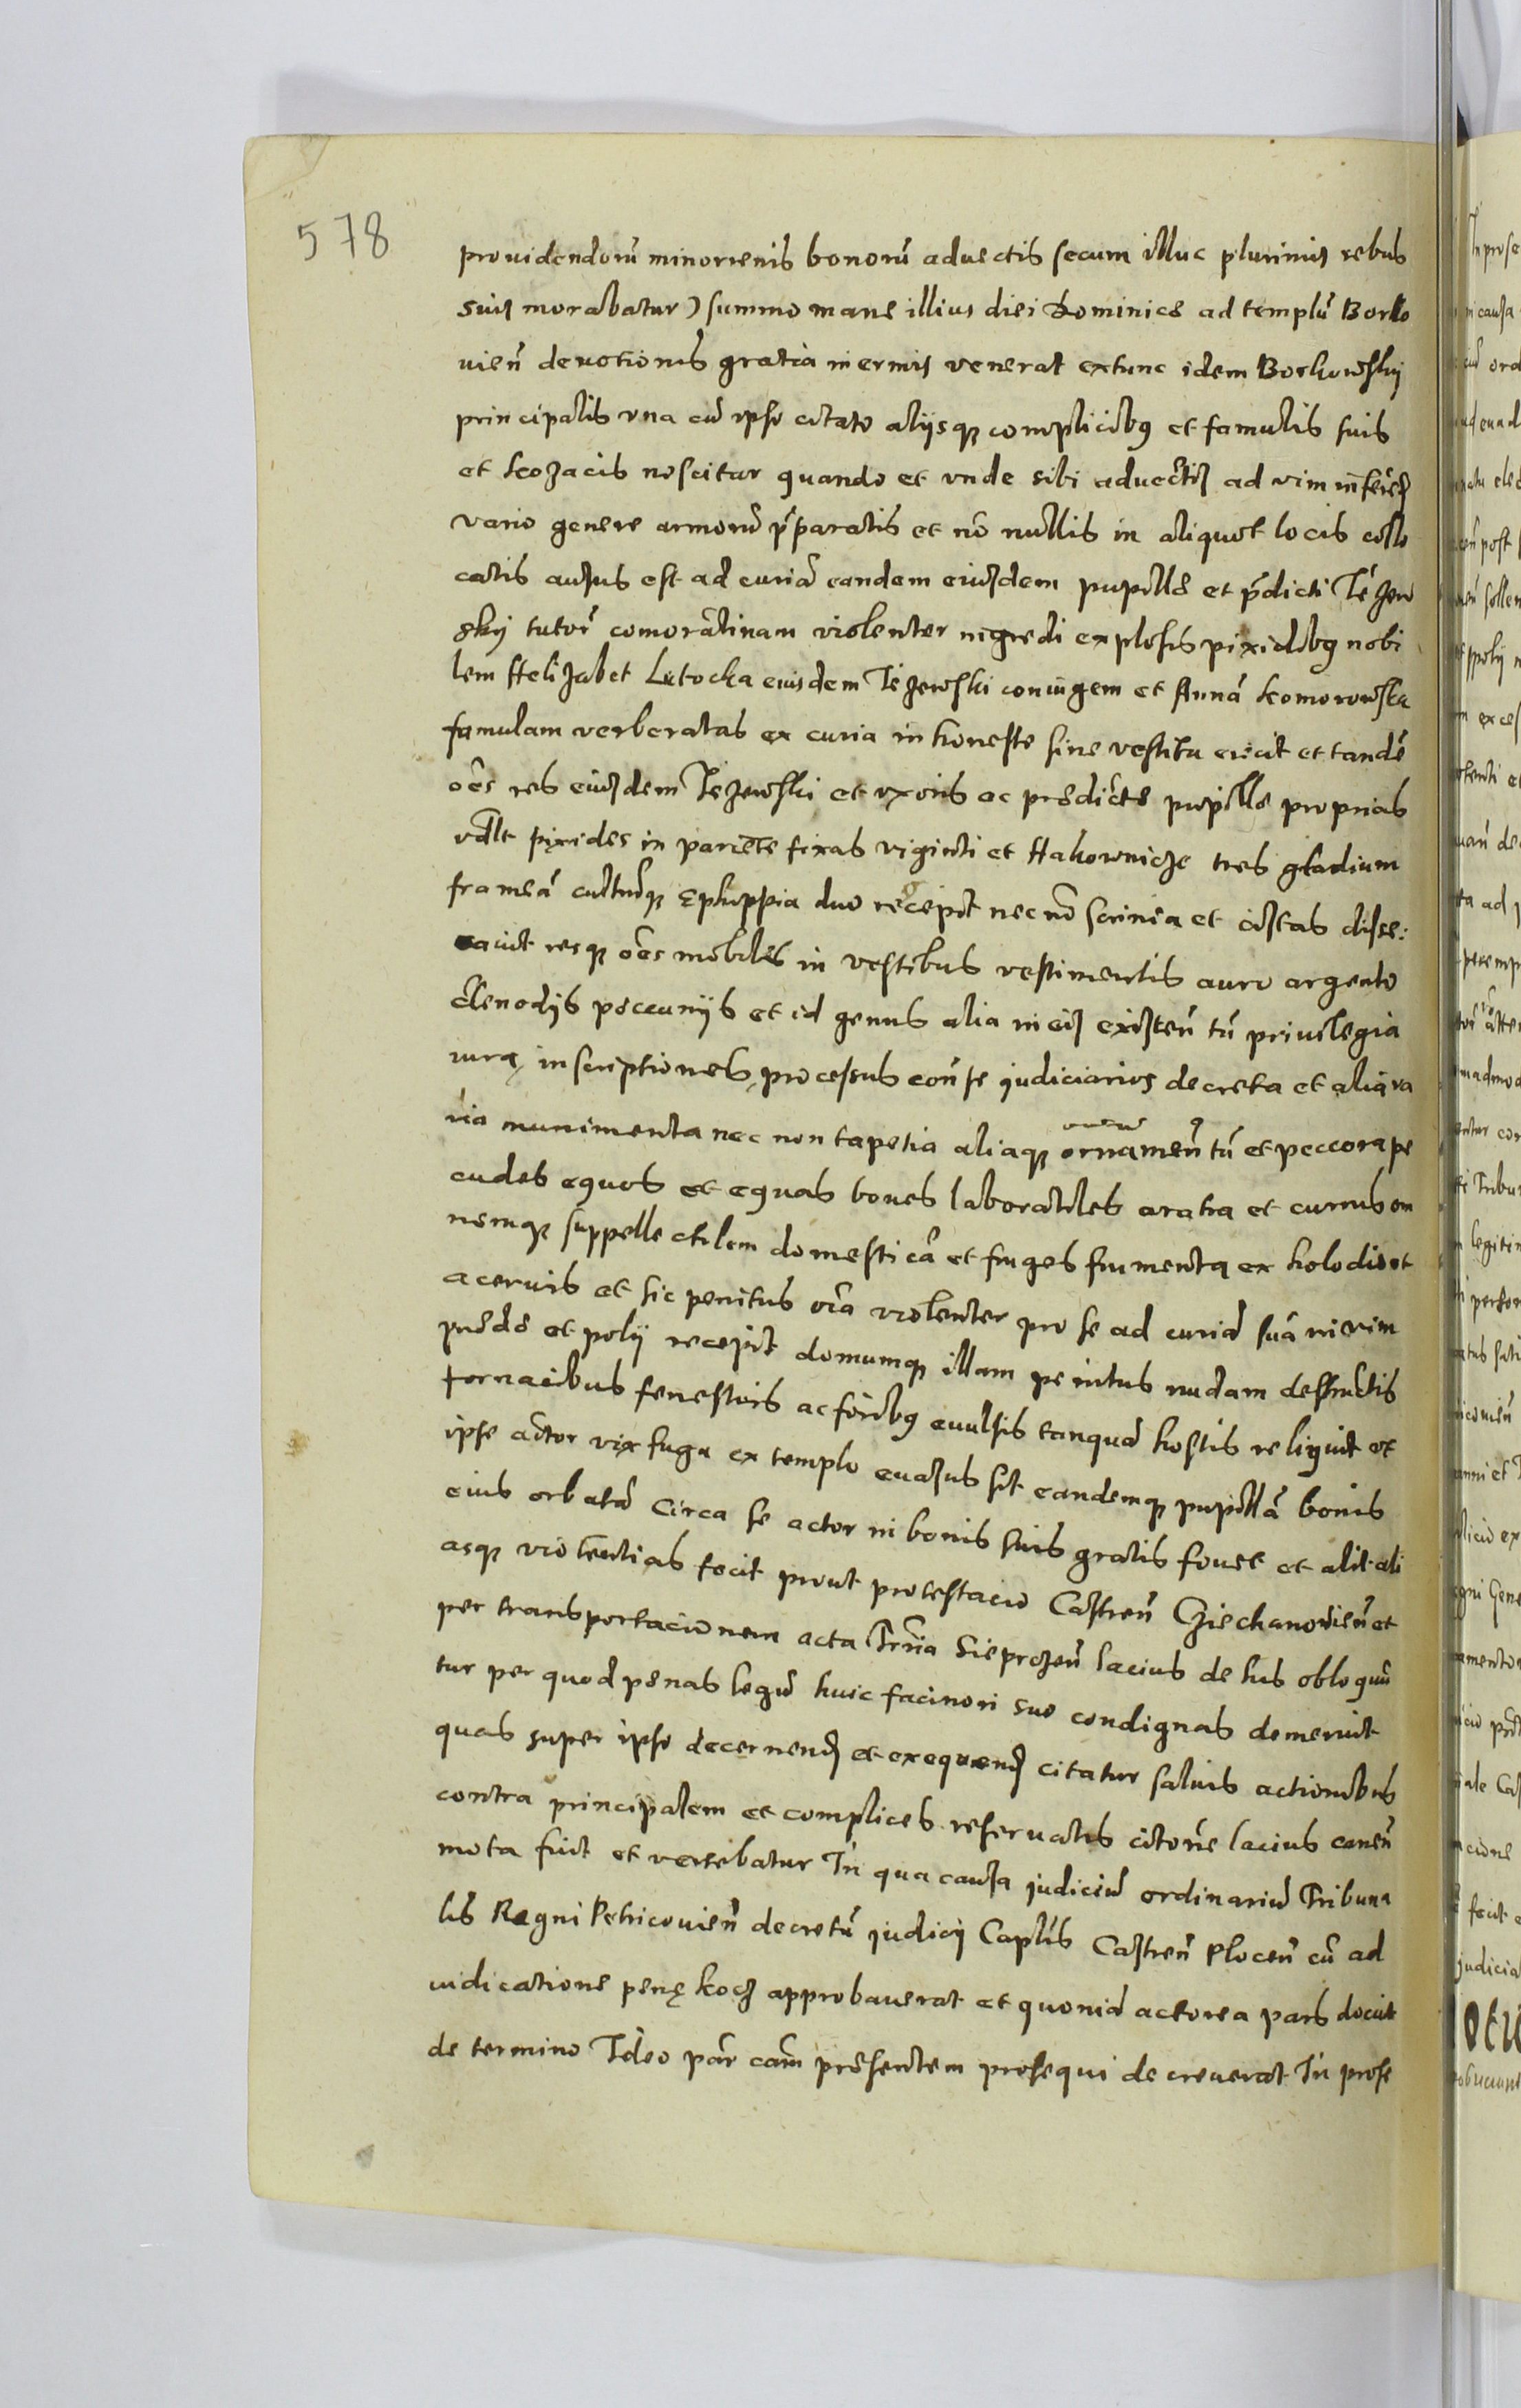 578
prouidendorū minorenis bonorū aduectis secum illuc plurimis rebus
suis morabatur) summo mane illius diei Dominice ad templū Borko
uien̄ deuotionis gratia inermis venerat extunc idem Borkowskij
principalis vna cū ipso citato alijsq complicibus et famulis suis
et kozacis noscitur quando et vnde sibi aduectis ad vim inferēd
vario genere armorū p̄paratis et nō nullis in aliquot locis collo
catis ausus est ad curiā eandem eiusdem pupille et p̄dicti Tézew
skij tutor̄ comoralinam violenter ingredi explosis pixidibus nobi
lem Helizabet Lutocka eiusdem Tézewski coniugem et Annā Komorowska
famulam verberatas ex curia inhoneste sine vestitu eiecit et tandē
oēs res eiusdem Tézewski et vxoris ac predicte pupille proprias
vdlt pixides in pariete fixas viginti et Hakownicze tres gladium
frameā cultrūq Ephippia duo recepit nec nō scrinea et cistas disse:
cauit resq oēs mobiles in vestibus vestimentis auro argento
clenodijs peccunijs et id genus alia in eis existen̄ tū priuilegia
iura inscriptiones processus con̄se judiciarios decreta et alia va
ria munimenta nec non tapetia aliaq ornamen̄tū et peccora pe
cudes equos et equas boues laboratiles aratra et currus om
nemq suppellectilem domesticā et fruges frumenta ex holodis et
aceruis et sic penitus oīa violenter pro se ad curiā suā in vim
prede et polij recepit domumq illam penitus nudam destructis
fornacibus fenestris ac foribus euulsis tanquā hostis reliquit et
ipse actor vix fuga ex templo euasus sit eandemq pupillā bonis
eius orbatā circa se actor in bonis suis gratis fouet et alit ali
asq violentias fecit prout protestacio Castren̄ Cziechanouien̄ et
per transportacionem acta Trria Sieprczen̄ lacius de his obloquū
tur per quod penas legū huic facinori suo condignas demeruit
quas super ipso decernend et exequend citatur saluis actionibus
contra principalem et complices reseruatis citōne lacius canen̄
mota fuit et vertebatur In qua causa judiciū ordinariū Tribuna
lis Regni Petricouien̄ decretū judicij Capt̄lis Castren̄ Plocen̄ cū ad
iudicatione penę kocz approbauerat et quoniā actorea pars docuit
de termino Ideo par̄ cam̄ presentem prosequi decreuerat In prose